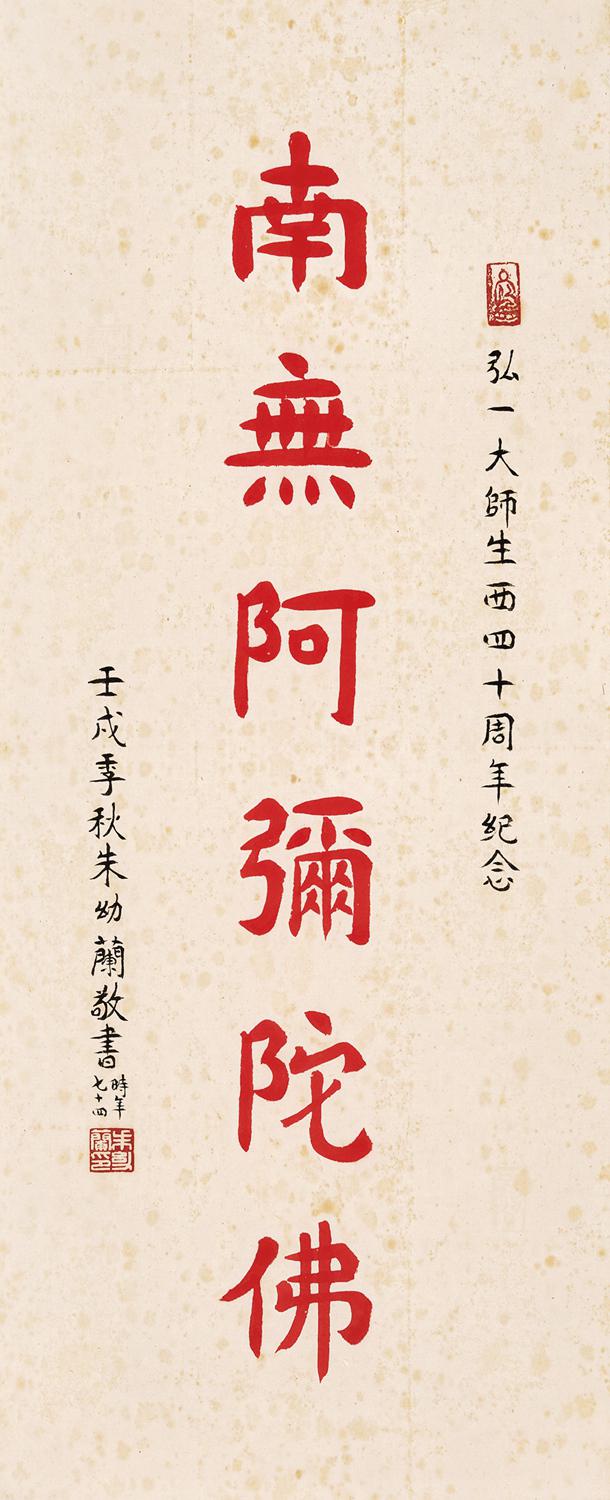 弘一大師生西四十周年纪念
南無阿彌陀佛
壬戌季秋朱幼蘭敬書
時年
七十四
朱幼
蘭印